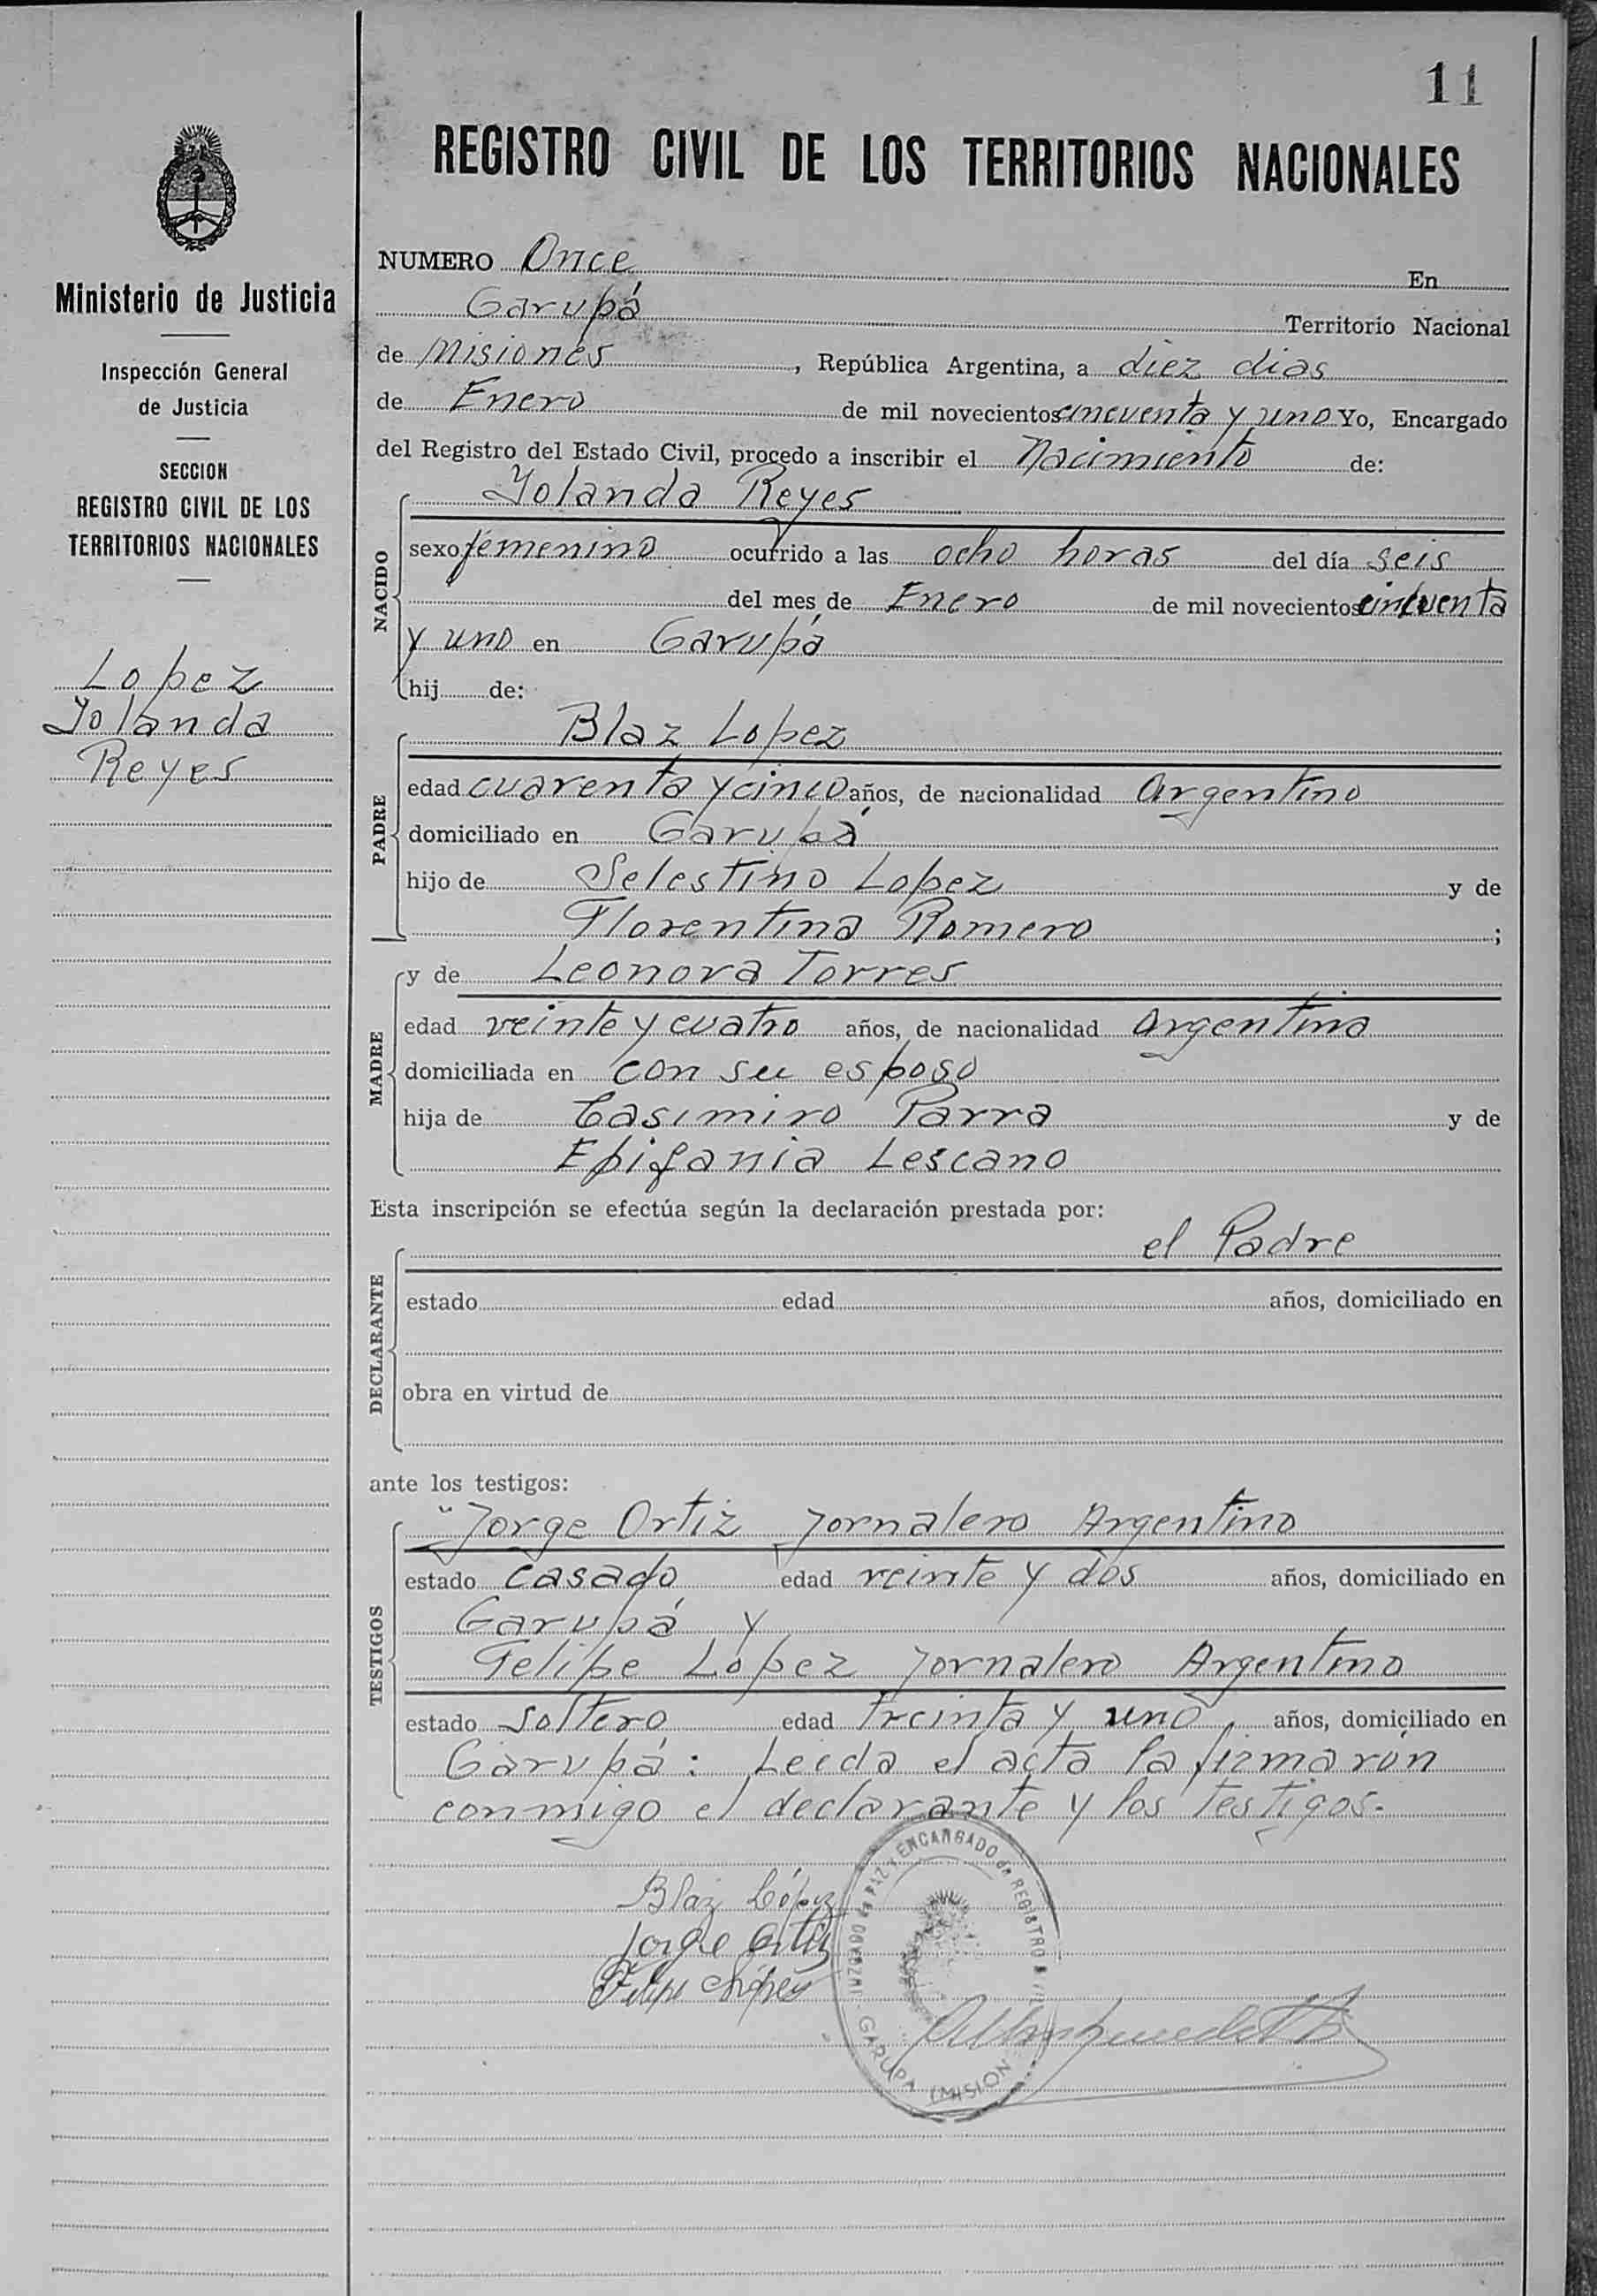 11
REGISTRO CIVIL DE LOS TERRITORIOS NACIONALES
Ministerio de Justicia
Inspección General
de Justicia
SECCION
REGISTRO CIVIL DE LOS
TERRITORIOS NACIONALES
Lopez
Yolanda
Reyes
NUMERO Once En
Garupá Territorio Nacional
de Misiones, República Argentina, a diez dias
de Enero de mil novecientos cincuenta y uno Yo, Encargado
del Registro del Estado Civil, procedo a inscribir el Nacimiento de:
NACIDO
Yolanda Reyes
sexo femenino ocurrido a las ocho horas del día seis
del mes de Enero de mil novecientos cincuenta
y uno en Garupá
hij de:
PADRE
Blaz Lopez
edad cuarenta y cinco años, de nacionalidad Argentino
domiciliado en Garupá
hijo de Selestino Lopez y de
Florentina Romero ;
MADRE
y de Leonora Torres
edad veinte y cuatro años, de nacionalidad Argentina
domiciliada en con su esposo
hija de Casimiro Parra y de
Epifania Lescano
Esta inscripción se efectúa según la declaración prestada por:
DECLARANTE
el Padre
estado edad años, domiciliado en
obra en virtud de
ante los testigos:
TESTIGOS
Jorge Ortiz Jornalero Argentino
estado casado edad veinte y dos años, domiciliado en
Garupá y
Felipe Lopez Jornalero Argentino
estado soltero edad treinta y uno años, domiciliado en
Garupá: Leida el acta la firmarón
conmigo el declarante y los testigos.
Blaz López
Jorge Ortiz
Felipe López
JUZGADO de PAZ y ENCARGADO de REGISTRO CIVIL
GARUPA (MISIONES)